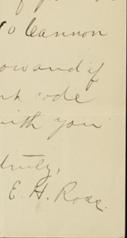 to Cannon
oward if
rk code
with you
truly,
E. H. Rose.